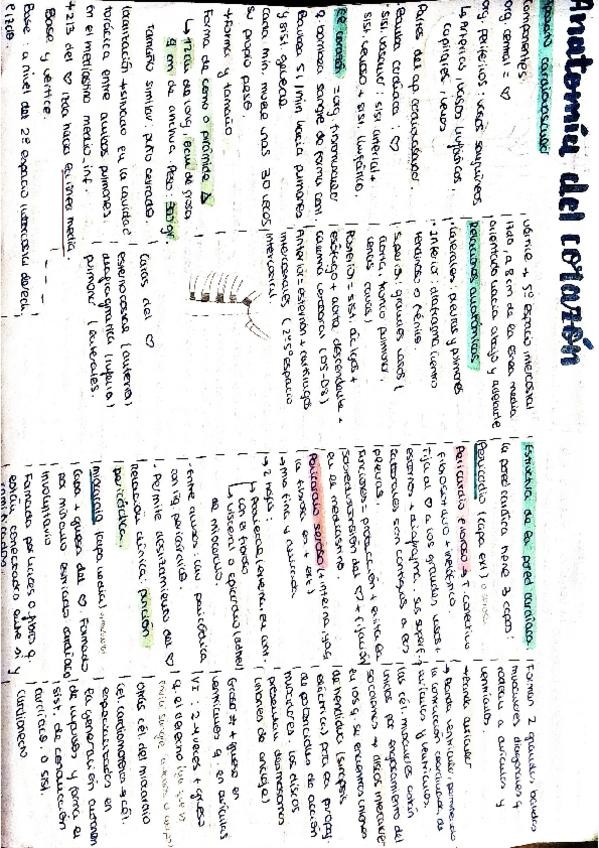 Anatomía del corazón
Aparato cardiovascular
Componentes:
org. central = ♡
org. periféricos: vasos sanguíneos
↳ Arterias, vasos linfáticos,
capilares, venas
Partes del ap cardiovascular
Bomba cardiaca: ♡
sist. vascular: sist. arterial +
sist. venoso + sist. linfático.
El corazón = org. fibromuscular
q. bombea sangre de forma cont.
Bombea 5 l/min hacia pulmones
y sist. general
cada min. mueve unas 30 veces
su propio peso.
+ Forma y tamaño
Forma de cono o pirámide △
↳ 12cm de long, 8cm de grosor
9 cm de anchura. Peso: 300 gr.
Tamaño similar: puño cerrado.
localización → situado en la cavidad
torácica entre ambos pulmones.
en el mediastino medio inf.
+ 2/3 del ♡ izq. hacia
Base y vértice.
Base: a nivel del 2º espacio intercostal derecho
vértice → 5º espacio intercostal
izq. a 8 cm de la línea media
orientado hacia abajo y adelante
Relaciones anatómicas
• laterales: pleuras y pulmones
• Inferior: diafragma (centro
tendinoso o frénico.
Superior: grandes vasos (
aorta, tronco pulmonar,
venas cavas)
Posterior = sist. ácigos +
esófago + aorta descendente +
columna vertebral (D5-D8)
Anterior = esternón + cartílagos
intercostales (2º-5º espacio
intercostal
Caras del ♡
esternocostal (anterior)
diafragmática (inferior)
pulmonar (laterales.
Estructura de la pared cardiaca:
la pared cardiaca tiene 3 capas:
Pericardio (capa ext)
Pericardio fibroso → T. conectivo
fibroso duro + inelástico.
Fija al ♡ a los grandes vasos +
esternón + diafragma. Su superf.
laterales son contiguas a las
pleuras.
Funciones = protección + evita la
sobredistensión del ♡ + fijación
en el mediastino.
Pericardio seroso (+ interna)
→ más fina y delicada
→ 2 hojas:
↳ Parietal (externa en cont.
con el fibroso
↳ visceral o epicardio (adherida
de miocardio.
• Entre ambas: cav. pericárdica
con líq. pericárdico.
• Permite deslizamiento del ♡
Relación clínica: punción
pericárdica.
Miocardio (capa media)
Capa + gruesa del ♡. Formado
por músculo estriado cardíaco
involuntario
Formado por haces o fibras q.
están conectadas entre sí y
ramificadas.
Forman 2 grandes bandas
musculares diagonales q
rodean a aurículas y
ventrículos.
→ Banda auricular
→ Banda ventricular, permitiendo
la contracción coordinada de
aurículas y ventrículos.
las cél. musculares están
unidas por engrosamiento del
sarcolema → discos intercalares
en los q. se encuentran uniones
de hendidura (sinapsis
eléctricas) para la propag.
de potenciales de acción
musculares. Los discos
presentan desmosomas
(uniones de anclaje)
Grosor ≠ + grueso en
ventrículos q. en aurículas
VI: 2-4 veces + grueso
q. el derecho
otras cél. del miocardio
cél. cardiomotora → cél.
especializadas en
la generación autónoma
de impulsos y forma el
sist. de conducción
cardíaco. o sist.
cardionector